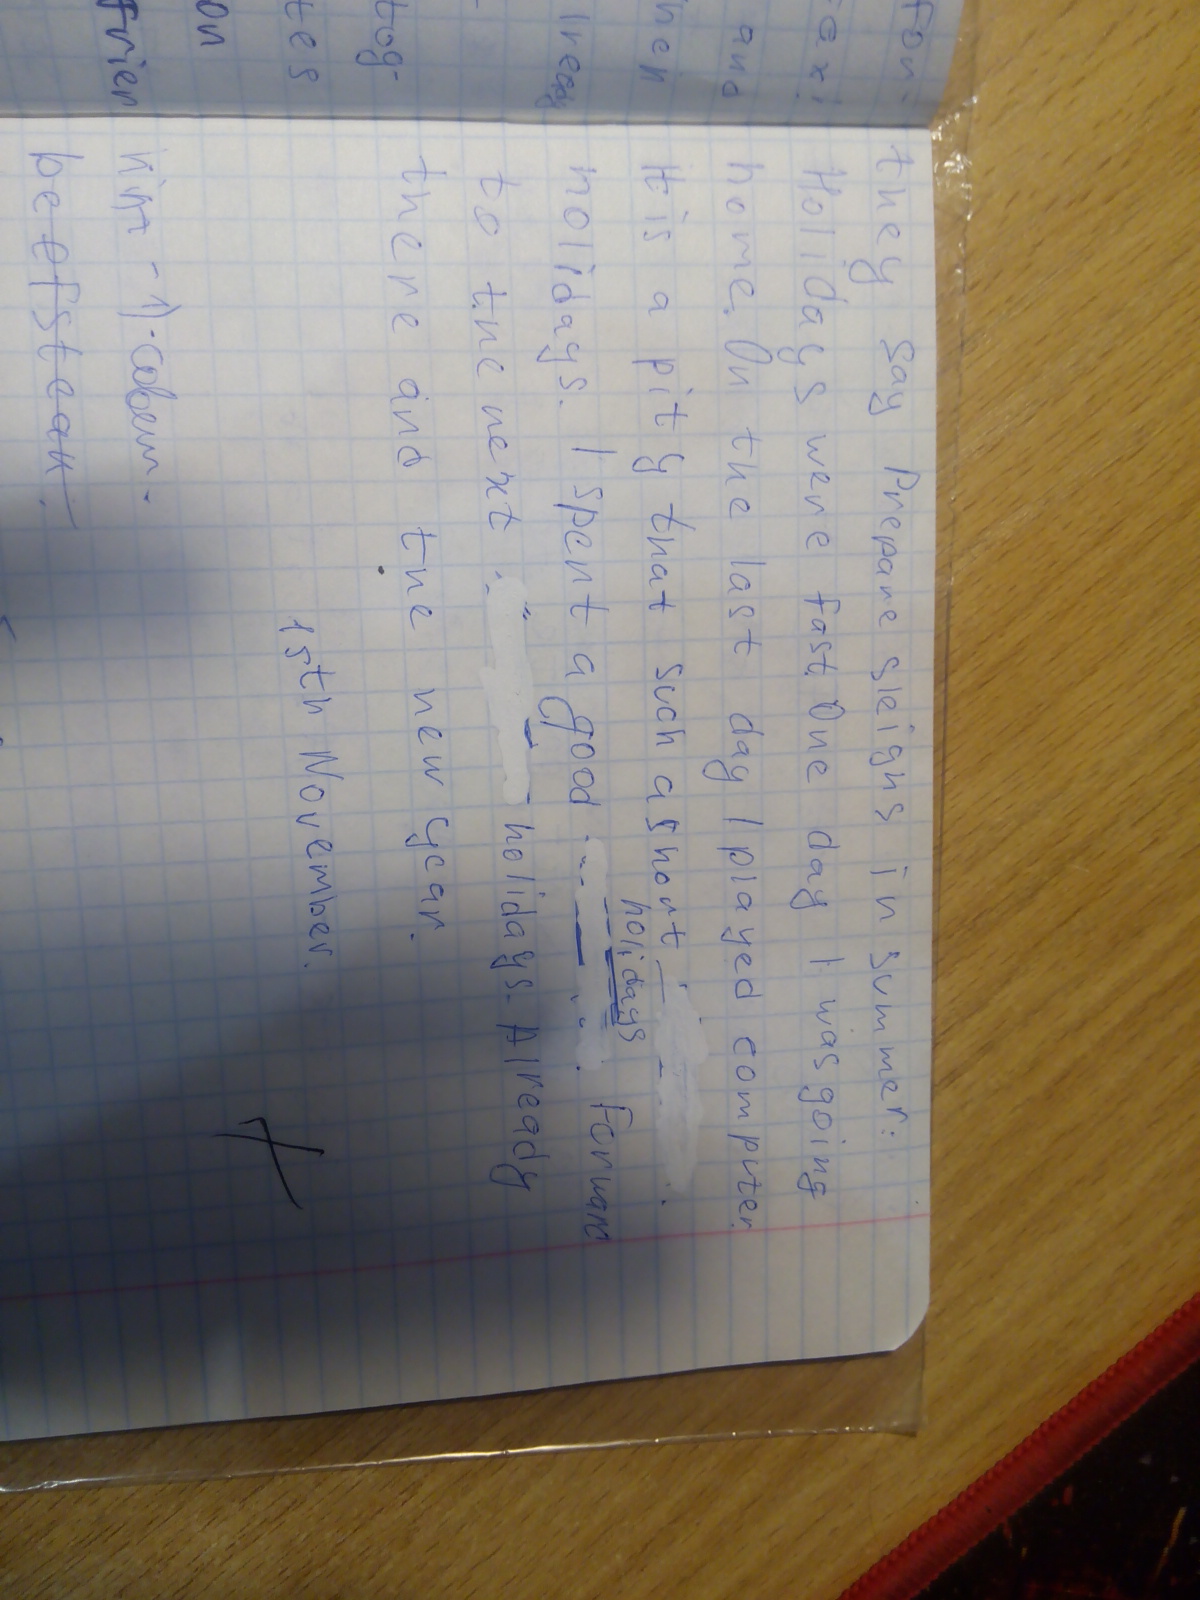 they say Prepare sleighs in summer:
Holidays were fast. One day I was going
home. On the last day I played computer.
It is a pity that such a short
holidays
holidays. I spent a good forward
to the next holidays. Already
there and the new year.
15th November.
beefsteak.
for-
and
then
tog-
tes
on